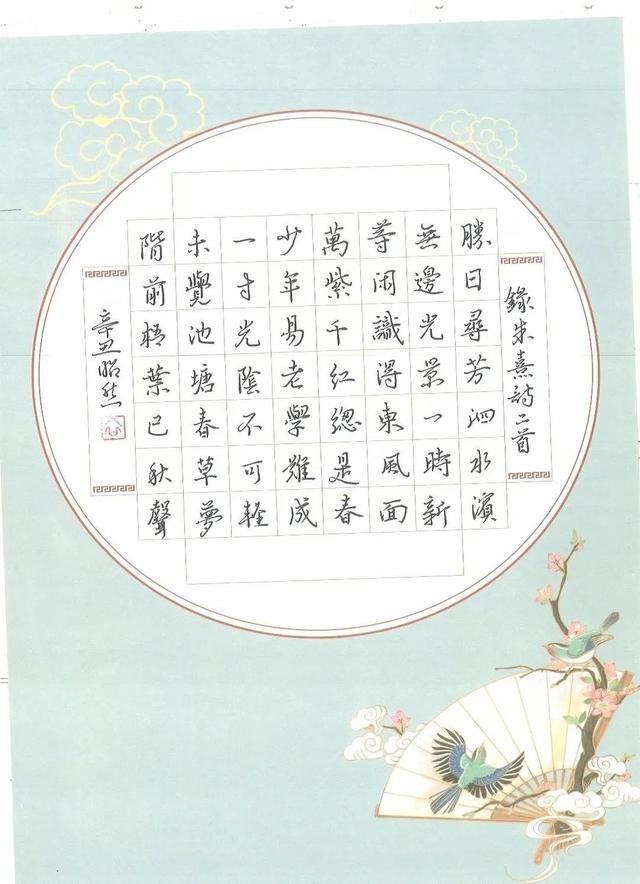 錄朱熹詩二首
勝日尋芳泗水濱
無邊光景一時新
等闲識得東風面
萬紫千红總是春
少年易老學難成
一寸光陰不可輕
未覺池塘春草夢
階前梧葉已秋聲
辛丑昭然